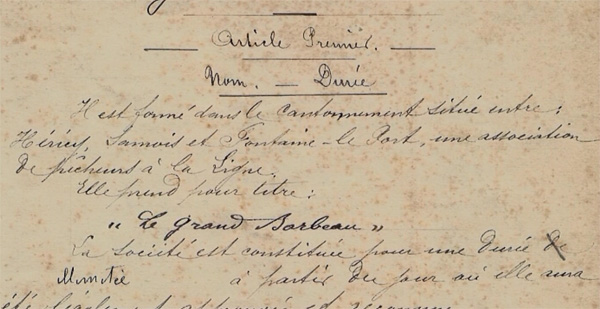 Article Premier.
Nom. — Durée
Il est formé dans le cantonnement situé entre :
Héricy, Samois et Fontaine-le-Port, une association
de pêcheurs à la ligne.
Elle prend pour titre :
"Le Grand Barbeau"
La société est constituée pour une durée de
illimitée à partir du jour où elle aura
été légalement approuvée et reconnue